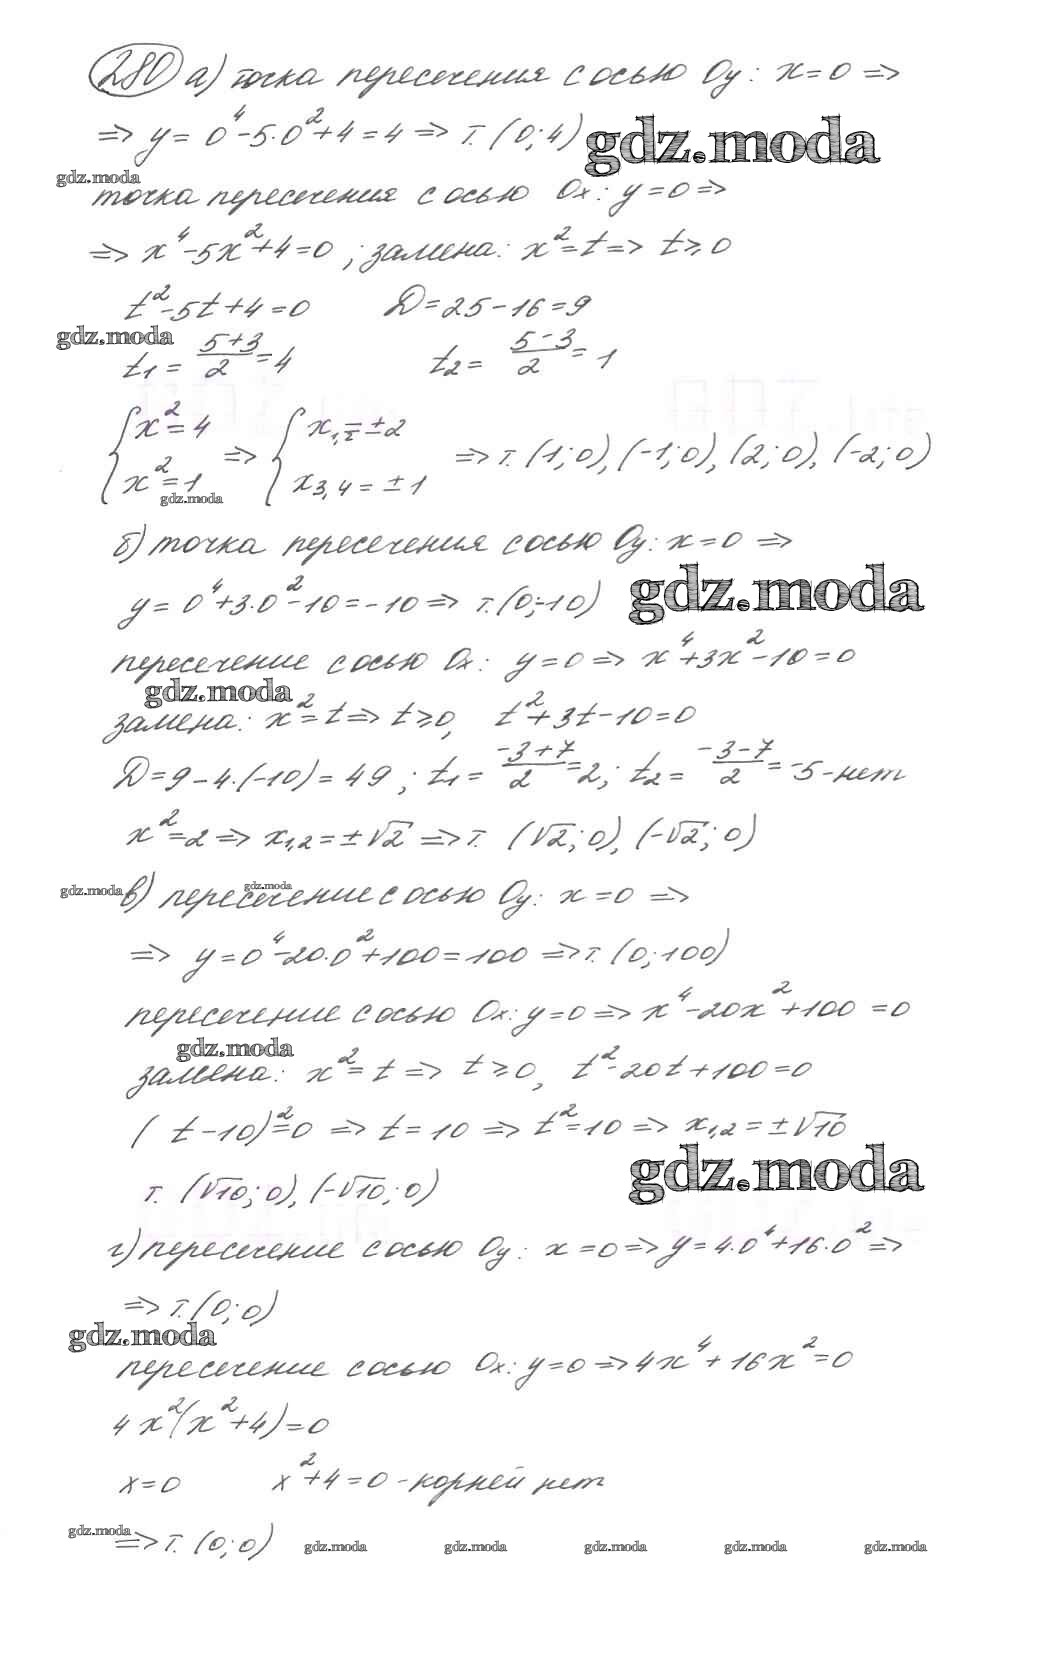 280 а) точка пересечения с осью Oy: x=0 =>
=> y = 0⁴-5·0²+4=4 => т. (0;4)
gdz.moda
gdz.moda
точка пересечения с осью Ox: y=0 =>
=> x⁴-5x²+4=0 ; замена: x²=t => t≥0
t²-5t+4=0 D=25-16=9
gdz.moda
t₁ = (5+3)/2 = 4 t₂ = (5-3)/2 = 1
{ x²=4 => { x₁,₂=±2 => т. (1;0), (-1;0), (2;0), (-2;0)
{ x²=1 { x₃,₄=±1
gdz.moda
б) точка пересечения с осью Oy: x=0 =>
y = 0⁴+3·0²-10=-10 => т. (0;-10)
gdz.moda
пересечение с осью Ox: y=0 => x⁴+3x²-10=0
gdz.moda
замена: x²=t => t≥0, t²+3t-10=0
D=9-4·(-10)=49 ; t₁ = (-3+7)/2 = 2; t₂ = (-3-7)/2 = -5 - нет
x²=2 => x₁,₂=±√2 => т. (√2;0), (-√2;0)
gdz.moda
gdz.moda
в) пересечение с осью Oy: x=0 =>
=> y=0⁴-20·0²+100=100 => т. (0;100)
пересечение с осью Ox: y=0 => x⁴-20x²+100=0
gdz.moda
замена: x²=t => t≥0, t²-20t+100=0
(t-10)²=0 => t=10 => t²=10 => x₁,₂=±√10
gdz.moda
т. (√10;0), (-√10;0)
г) пересечение с осью Oy: x=0 => y=4·0⁴+16·0² =>
=> т. (0;0)
gdz.moda
пересечение с осью Ox: y=0 => 4x⁴+16x²=0
4x²(x²+4)=0
x=0 x²+4=0 - корней нет
gdz.moda
=> т. (0;0)
gdz.moda gdz.moda gdz.moda gdz.moda gdz.moda